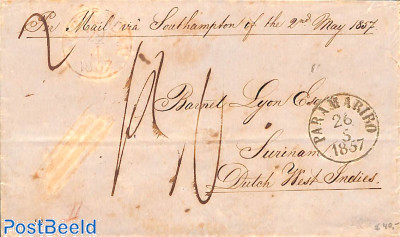 Per Mail viâ Southampton of the 2nd May 1857.
2
1857
Barnet Lyon Esq
PARAMARIBO
26
5
1857
Surinam
Dutch West Indies.
PostBeeld
€40.-